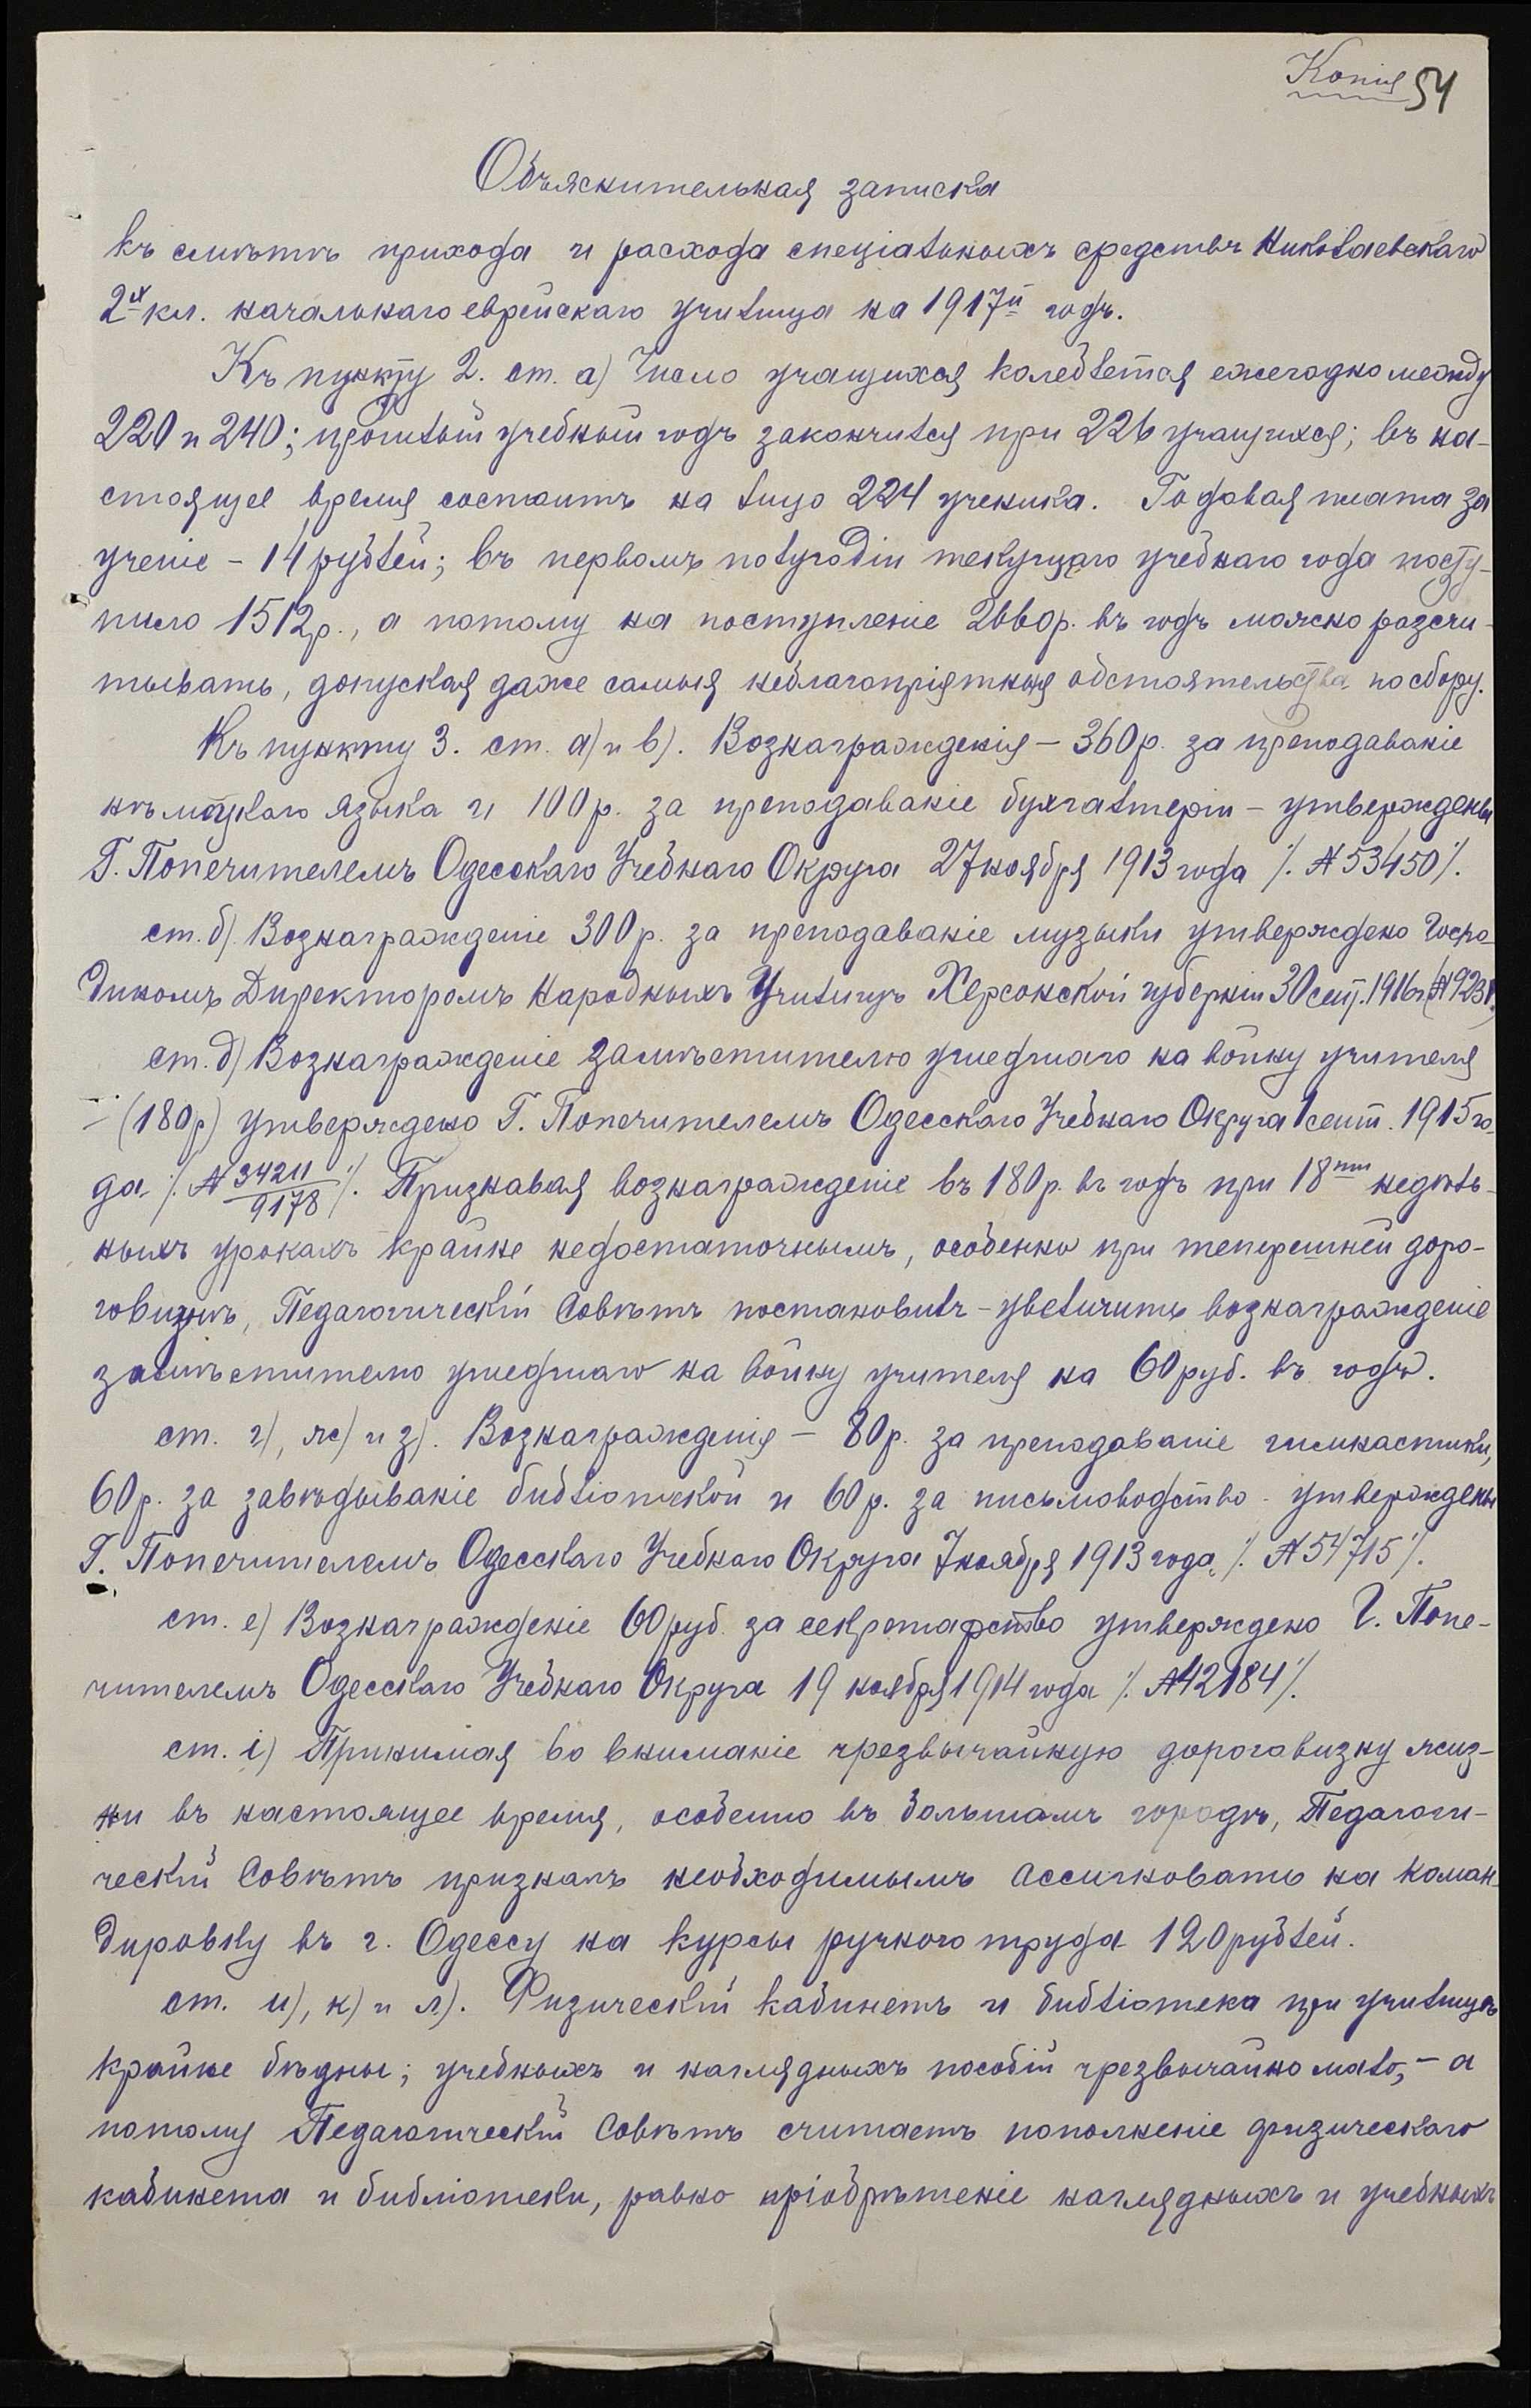 Копія
54
Объяснительная записка
къ смѣтѣ прихода и расхода спеціальныхъ средствъ Николаевскаго
2х кл. начальнаго еврейскаго училища на 1917й годъ.
Къ пункту 2. ст. а) Число учащихся колеблется ежегодно между
220 и 240; прошлый учебный годъ закончился при 226 учащихся; въ на-
стоящее время состоитъ на лицо 224 ученика. Годовая плата за
ученіе - 14 рублей; въ первомъ полугодіи текущаго учебнаго года посту-
пило 1512 р., а потому на поступленіе 2660 р. въ годъ можно разсчи-
тывать, допуская даже самыя неблагопріятныя обстоятельства по сбору.
Къ пункту 3. ст. а) и в). Вознагражденія - 360 р. за преподаваніе
нѣмецкаго языка и 100 р. за преподаваніе бухгалтеріи - утверждены
Г. Попечителемъ Одесскаго Учебнаго Округа 27 ноября 1913 года ⁒ № 53450 ⁒.
ст. б) Вознагражденіе 300 р. за преподаваніе музыки утверждено Госпо-
диномъ Директоромъ Народныхъ Училищъ Херсонской губерніи 30 сент. 1916 г. (№ 9231)
ст. д) Вознагражденіе замѣстителю ушедшаго на войну учителя
- (180 р) утверждено Г. Попечителемъ Одесскаго Учебнаго Округа 1 сент. 1915 го-
да ⁒ № 34211/9178 ⁒. Признавая вознагражденіе въ 180 р. въ годъ при 18ти недѣль-
ныхъ урокахъ крайне недостаточнымъ, особенно при теперешней доро-
говизнѣ, Педагогическій Совѣтъ постановилъ - увеличить вознагражденіе
замѣстителю ушедшаго на войну учителя на 60 руб. въ годъ.
ст. г), ж) и з). Вознагражденія - 80 р. за преподаваніе гимнастики,
60 р. за завѣдываніе библіотекой и 60 р. за письмоводство - утверждены
Г. Попечителемъ Одесскаго Учебнаго Округа 7 ноября 1913 года ⁒ № 54715 ⁒.
ст. е) Вознагражденіе 60 руб. за секретарство утверждено Г. Попе-
чителемъ Одесскаго Учебнаго Округа 19 ноября 1914 года ⁒ № 42184 ⁒.
ст. і) Принимая во вниманіе чрезвычайную дороговизну жиз-
ни въ настоящее время, особенно въ большомъ городѣ, Педагоги-
ческій Совѣтъ призналъ необходимымъ ассигновать на коман-
дировку въ г. Одессу на курсы ручного труда 120 рублей.
ст. и), к) и л). Физическій кабинетъ и библіотека при училищѣ
крайне бѣдны; учебныхъ и наглядныхъ пособій чрезвычайно мало, - а
потому Педагогическій Совѣтъ считаетъ пополненіе физическаго
кабинета и библіотеки, равно пріобрѣтеніе наглядныхъ и учебныхъ